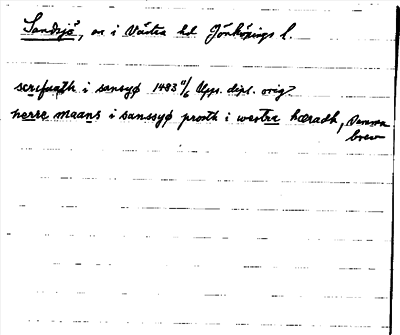 Sandsjö, sn i Västra hd Jönköpings l.
scrifuath i sansyø 1483 9/6 Upps. dipl. orig
herre maans i sanssyø prosth i westra hæradh, Samma
brev